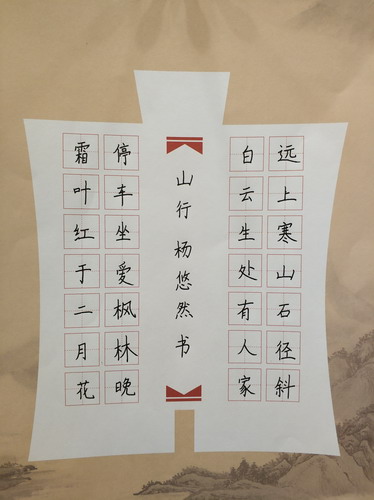 远上寒山石径斜
白云生处有人家
山行 杨悠然 书
停车坐爱枫林晚
霜叶红于二月花